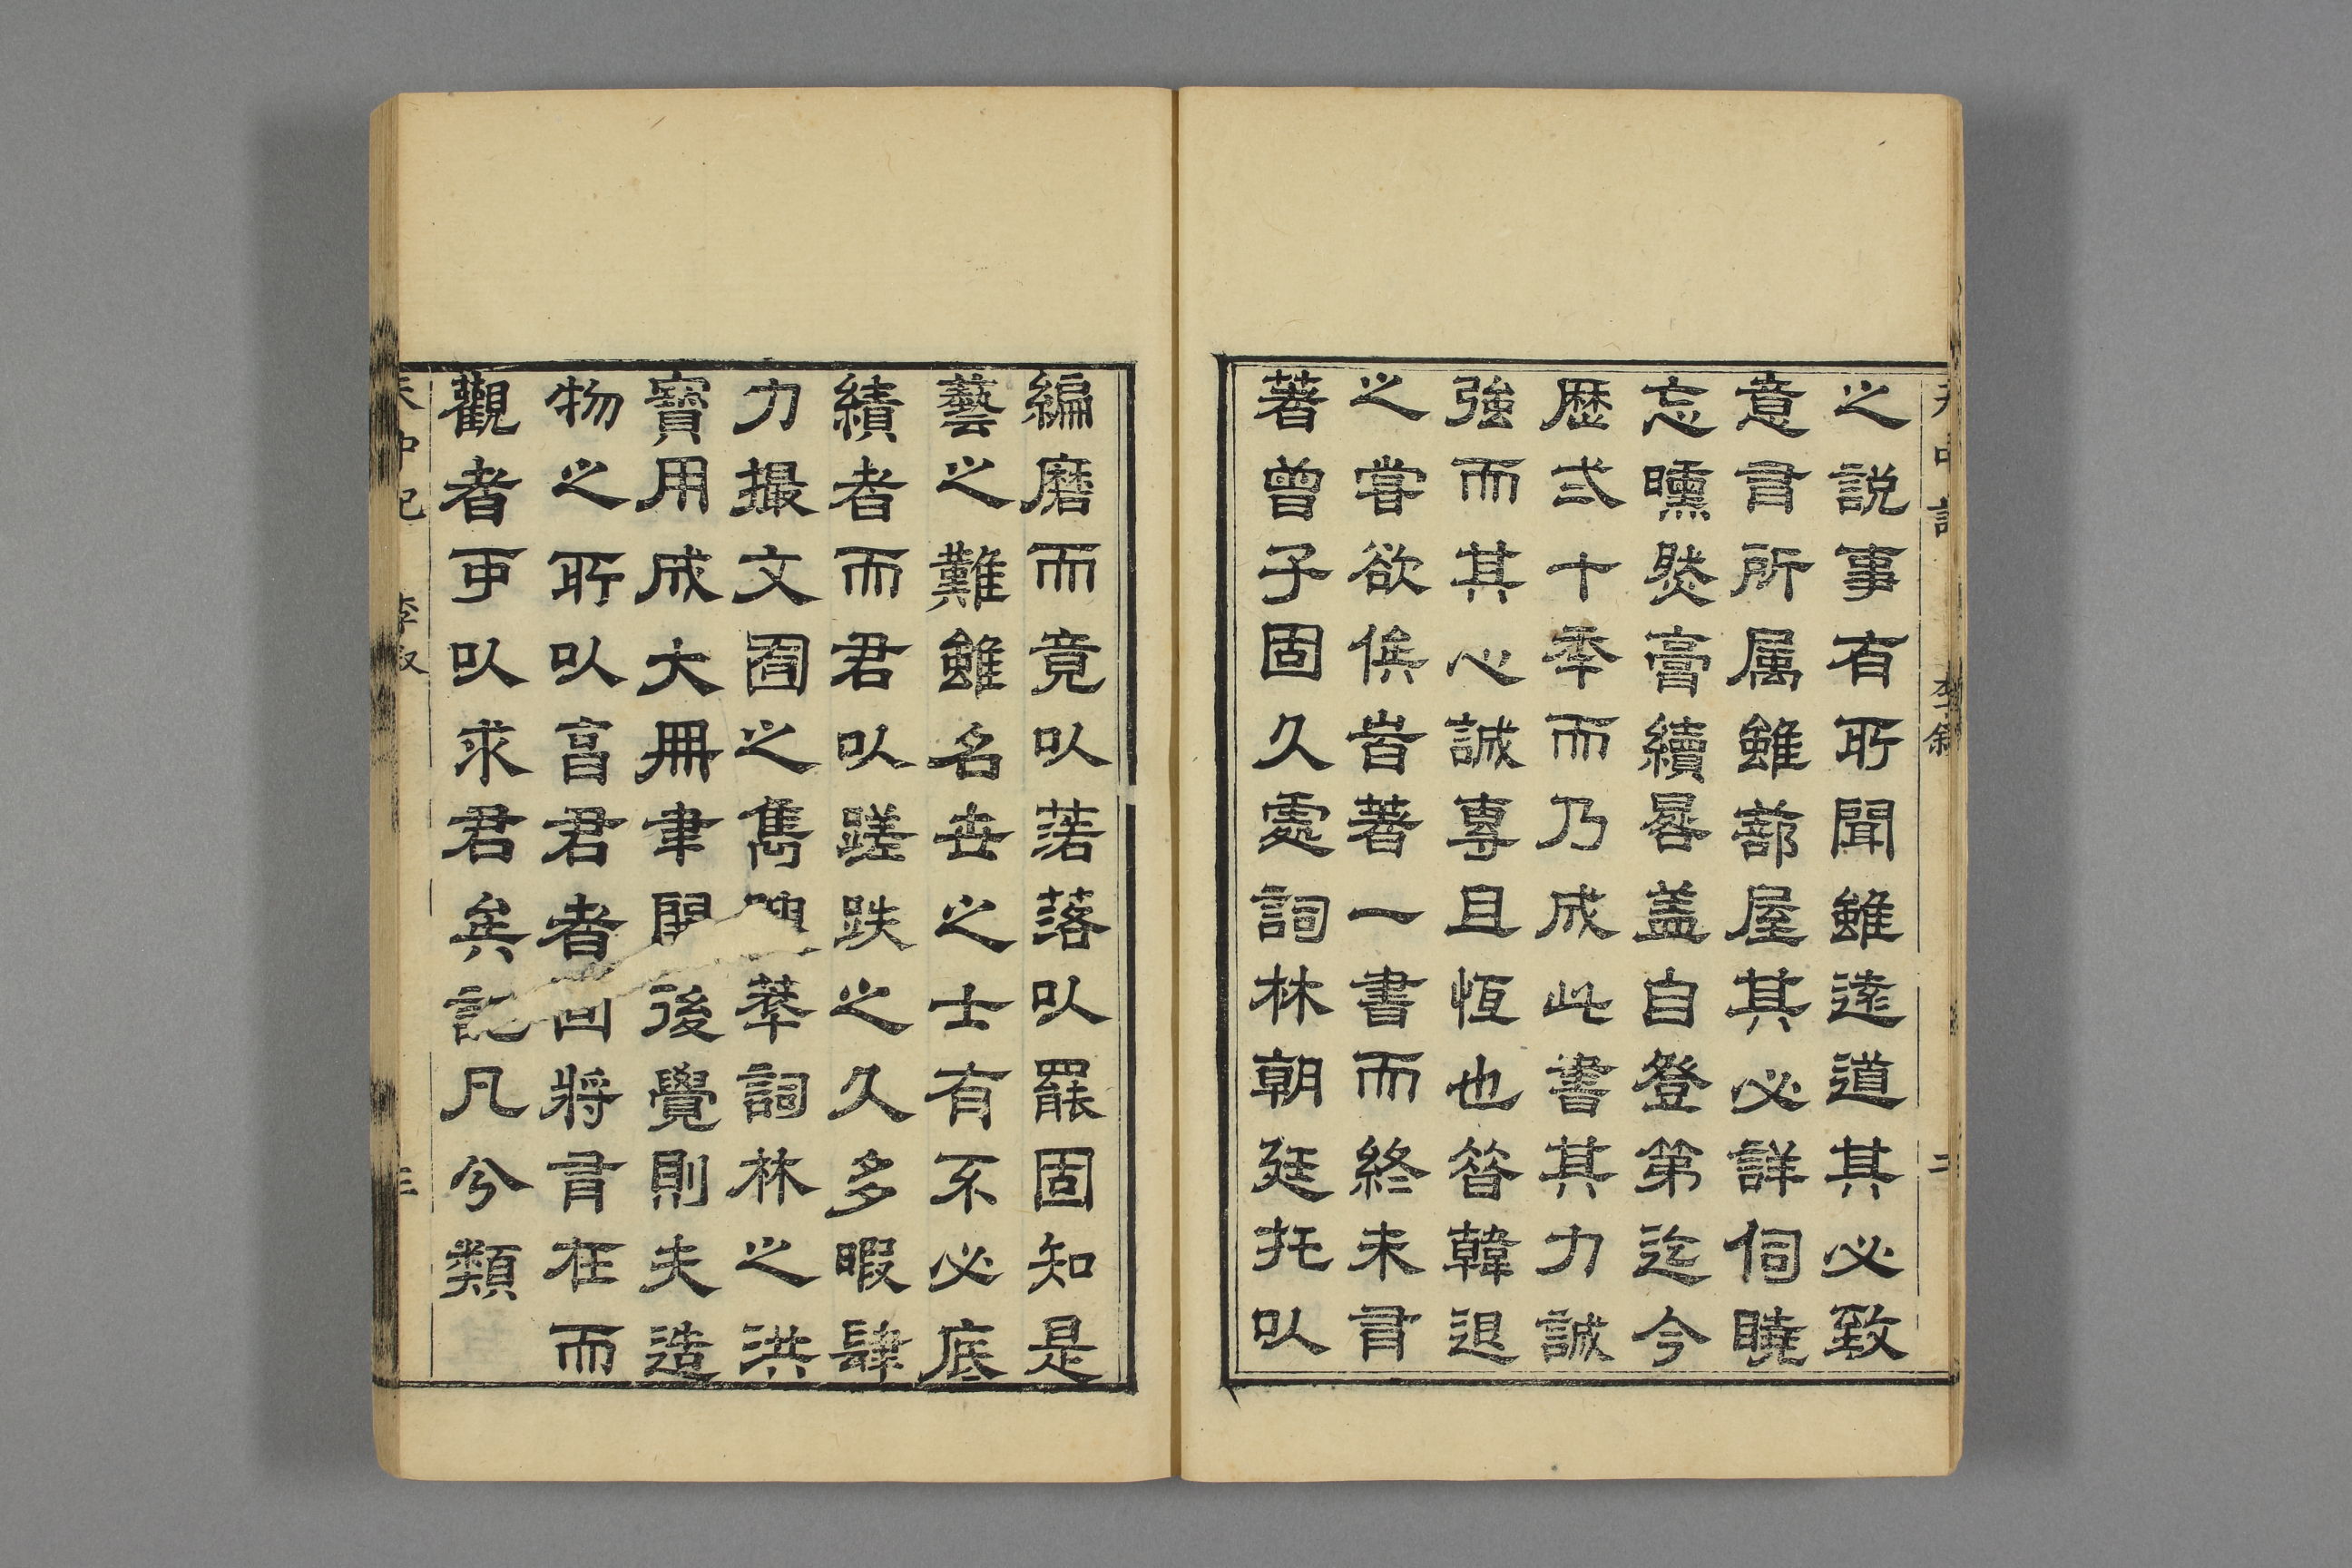 之説事有所聞雖遠道其必致
意言所属雖蔀屋其必詳伺曉
忘曛然膏續晷盖自登第迄今
歴弍十年而乃成此書其力誠
強而其心誠專且恆也答韓退
之嘗欲俟昔著一書而終未言
著曾子固久處詞林朝廷托以
編磨而竟以落落以罷固知是
藝之難雖名世之士有不必底
績者而君以蹉跌之久多暇肆
力撮文囿之雋 萃詞林之洪
寶用成大冊聿開後覺則夫造
物之所以亯君者 將言在而
觀者可以求君矣記凡兮類